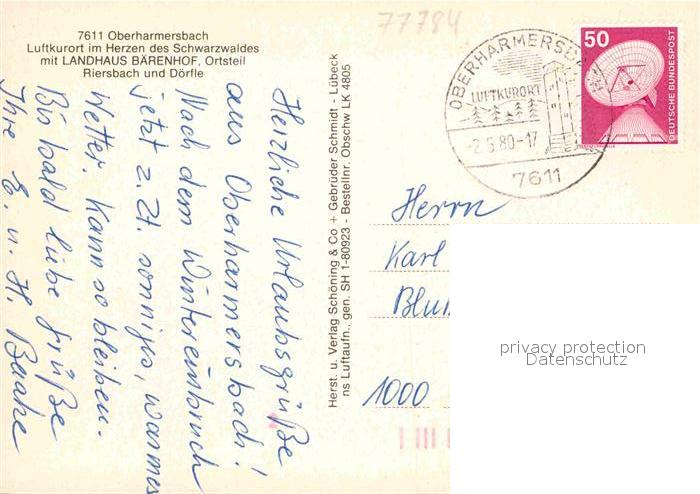 7611 Oberharmersbach
Luftkurort im Herzen des Schwarzwaldes
mit LANDHAUS BÄRENHOF, Ortsteil
Riersbach und Dörfle
77784
Herzliche Urlaubsgrüße
aus Oberharmersbach!
Nach dem Wintereinbruch
jetzt z. Zt. sonniges, warmes
Wetter. Kann so bleiben.
Bis bald liebe Grüße
Ihre E. u. H. Baake
Herst. u. Verlag Schöning & Co + Gebrüder Schmidt - Lübeck
ns Luftaufn., gen. SH 1-80923 - Bestellnr. Obschw LK 4805
OBERHARMERSBA
LUFTKURORT
-2.5.80-17
7611
50
DEUTSCHE BUNDESPOST
Herrn
Karl
1000
privacy protection
Datenschutz